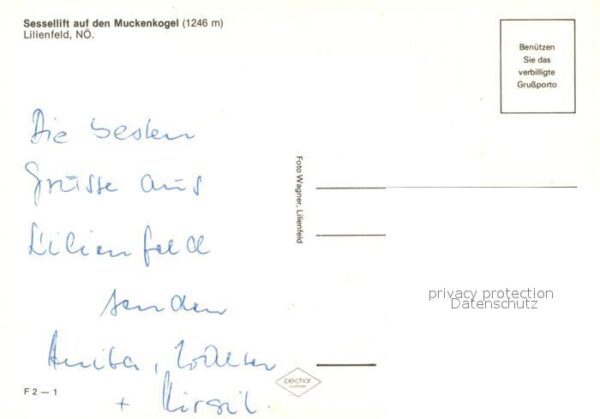 Sessellift auf den Muckenkogel (1246 m)
Lilienfeld, NÖ.
Benützen
Sie das
verbilligte
Grußporto
Die besten
Grüsse aus
Lilienfeld
senden
Anita, Walter
+
Foto Wagner, Lilienfeld
privacy protection
Datenschutz
peichar
F 2 — 1